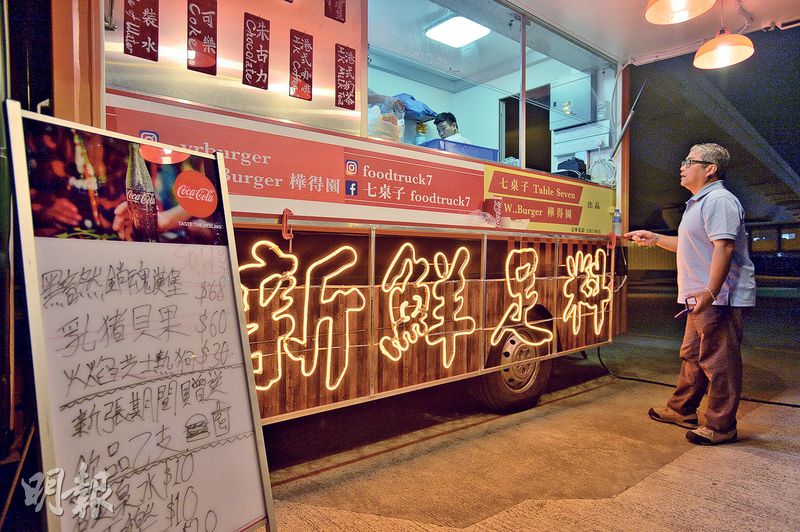 裝水
可樂
Coke
朱古力
Chocolate
港式咖啡
HK Cafe
港式奶茶
HK Milk Tea
yrburger
Burger 樺得園
foodtruck7
七桌子 foodtruck7
七桌子 Table Seven
W..Burger 樺得園
出品
新鮮足料
Coca-Cola
TASTE THE FEELING
黯然銷魂漢堡 $68
乳豬貝果 $60
火焰芝士熱狗
新張期間贈送
飲品乙支
水 $10
$10
明報